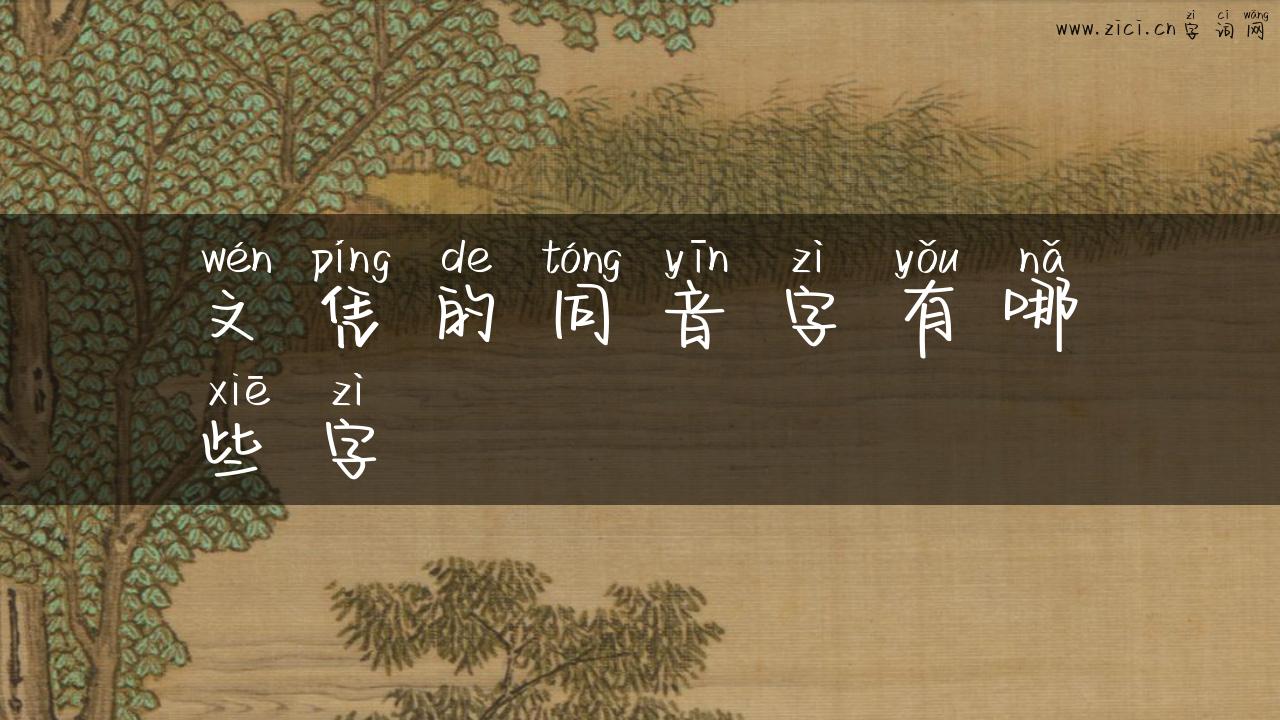 zì cí wǎng
www.zici.cn字词网
wén píng de tóng yīn zì yǒu nǎ
文凭的同音字有哪
xiē zì
些字